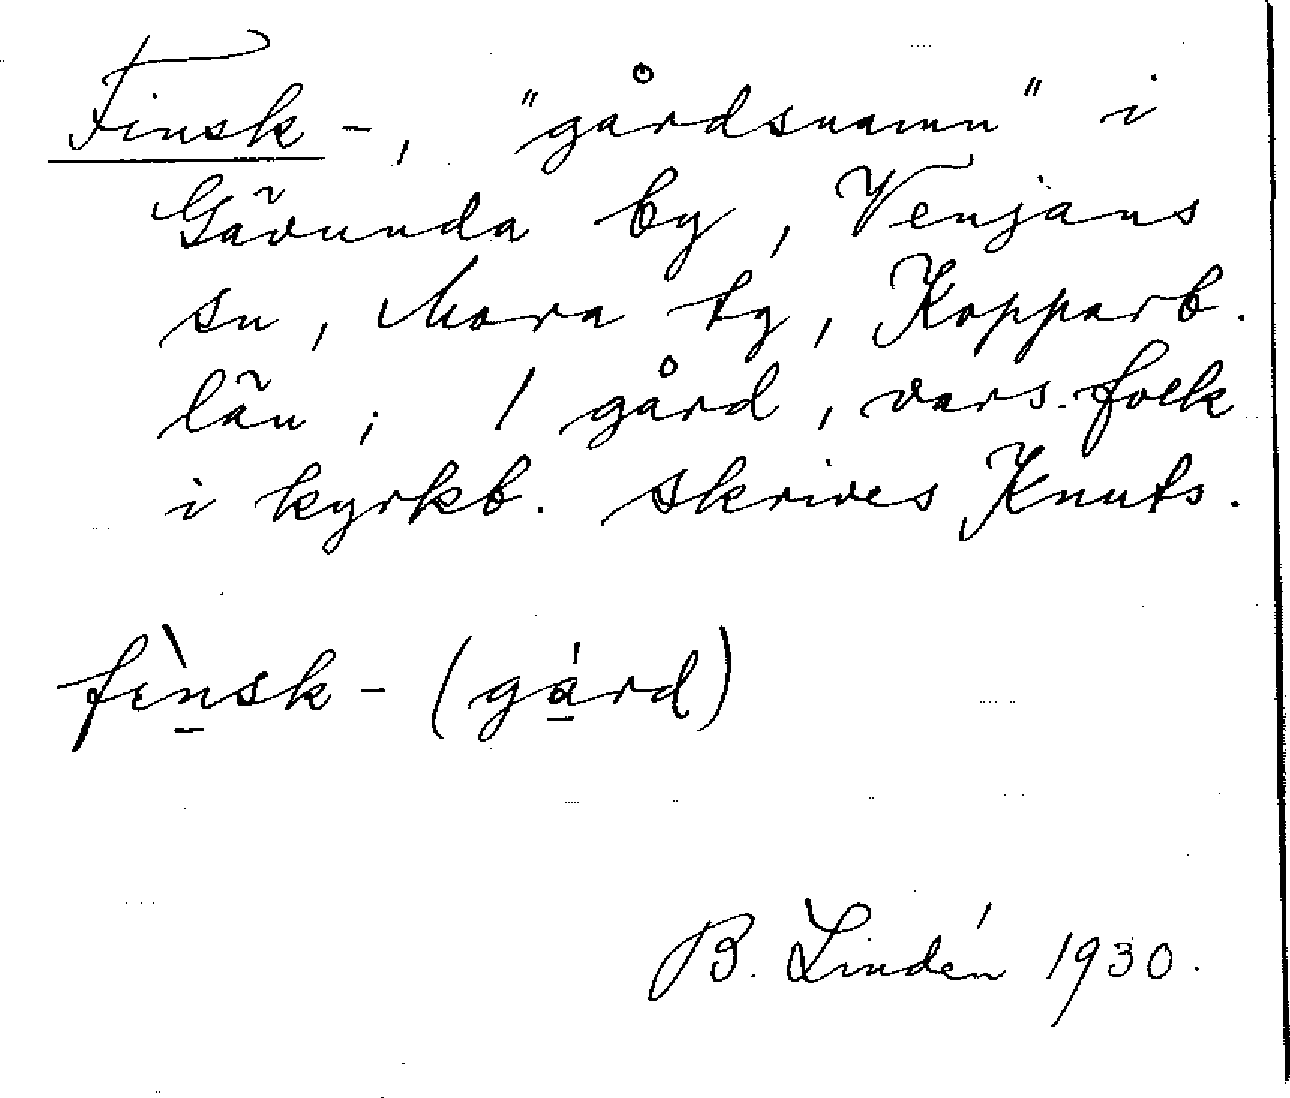 Finsk-, "gårdsnamn" i
Gävunda by, Venjans
sn, Mora tg, Kopparb.
län; 1 gård, vars folk
i kyrkb. skrives Knuts.
fìnsk- (gárd)
B. Lindén 1930.